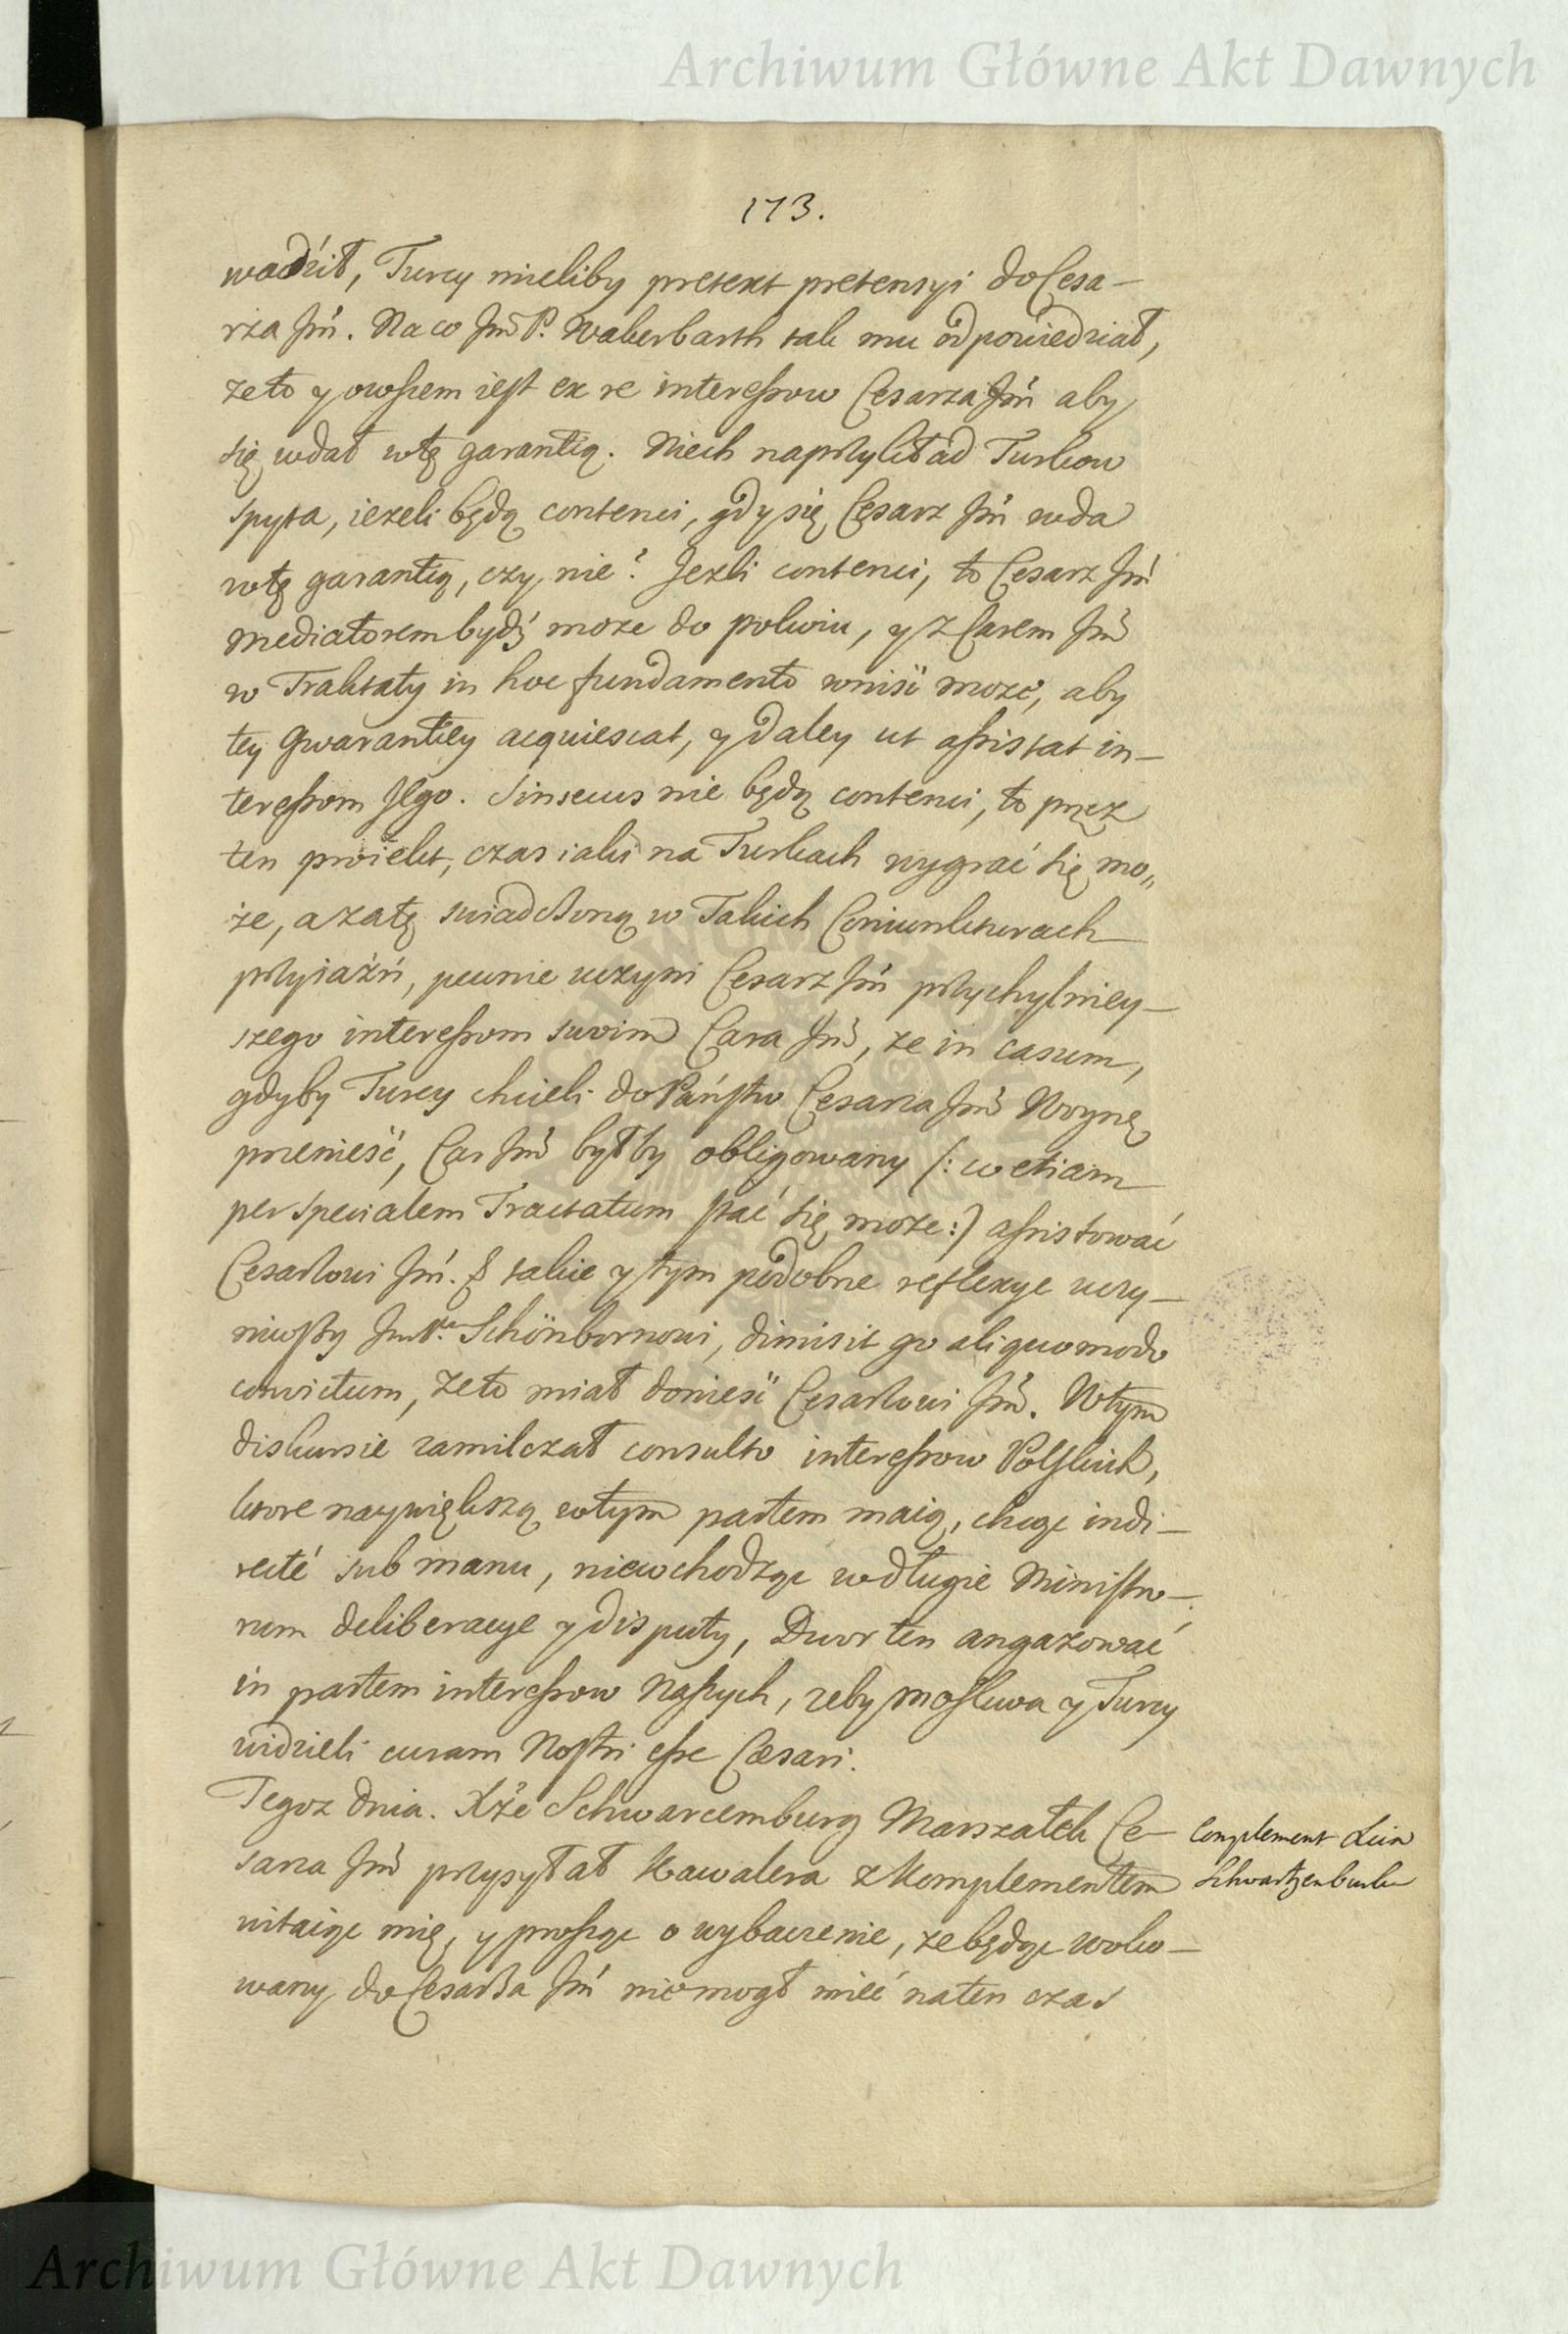 Archiwum Główne Akt Dawnych
173.
wadził, Turcy mieliby pretext pretensyi do Cesa-
rza Jm̃. Na co Jm̃ P. Wakerbarth tak mu odpowiedział,
że to y owszem iest ex re interessow Cesarza Jm̃ aby
się wdał w tę garantią. Niech naprzykład Turkow
spyta, ieżeli będą contenci, gdy się Cesarz Jm̃ wda
w tę garantią, czy nie? Jeżli contenci, to Cesarz Jm̃
Mediatorem bydź może do pokoiu, y z Carem Jm̃
w Traktaty in hoc fundamento wniść może, aby
tey Gwarantiey acquiescat, y daley ut assistat in-
teressom Jego. Sin secus nie będą contenci, to przez
ten proiekt, czas iaki na Turkach wygrać się mo„
że, a za tę swiadczoną w Takich Coniunkturach
przyiaźń, pewnie uczyni Cesarz Jm̃ przychylniey-
szego interessom swoim Cara Jm̃, że in casum,
gdyby Turcy chcieli do Państw Cesarza Jm̃ Woynę
przenieść, Car Jm̃ byłby obligowany (: co etiam
per specialem Tractatum stać się może:) assistować
Cesarzowi Jm̃. takie y tym podobne reflexye uczy-
niwszy Jm Pu Schönbornowi, dimisit go aliquo modo
convictum, że to miał donieść Cesarzowi Jm̃. W tym
diskursie zamilczał consulto interessow Polskich,
ktore naywiększą w tym partem maią, chcąc indi-
recté sub manu, nie wchodząc w długie Ministro-
rum deliberacye y disputy, Dwor ten angażować
in partem interessow Naszych, żeby Moskwa y Turcy
widzieli curam Nostri esse Cæsari.
Tegoz dnia. Xże Schwarcemburg Marszałek Ce-
sarza Jm̃ przysyłał Kawalera z Komplementem
witaiąc mię, y prosząc o wybaczenie, że będąc woko-
wany do Cesarza Jm̃ nie mogł mieć na ten czas
Complement Xcia
Schwartzenburka
Archiwum Główne Akt Dawnych